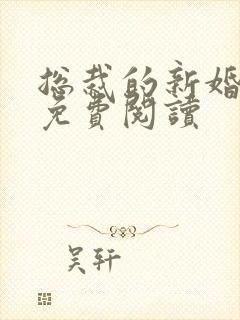 总裁的新婚
免費閱讀
吴轩